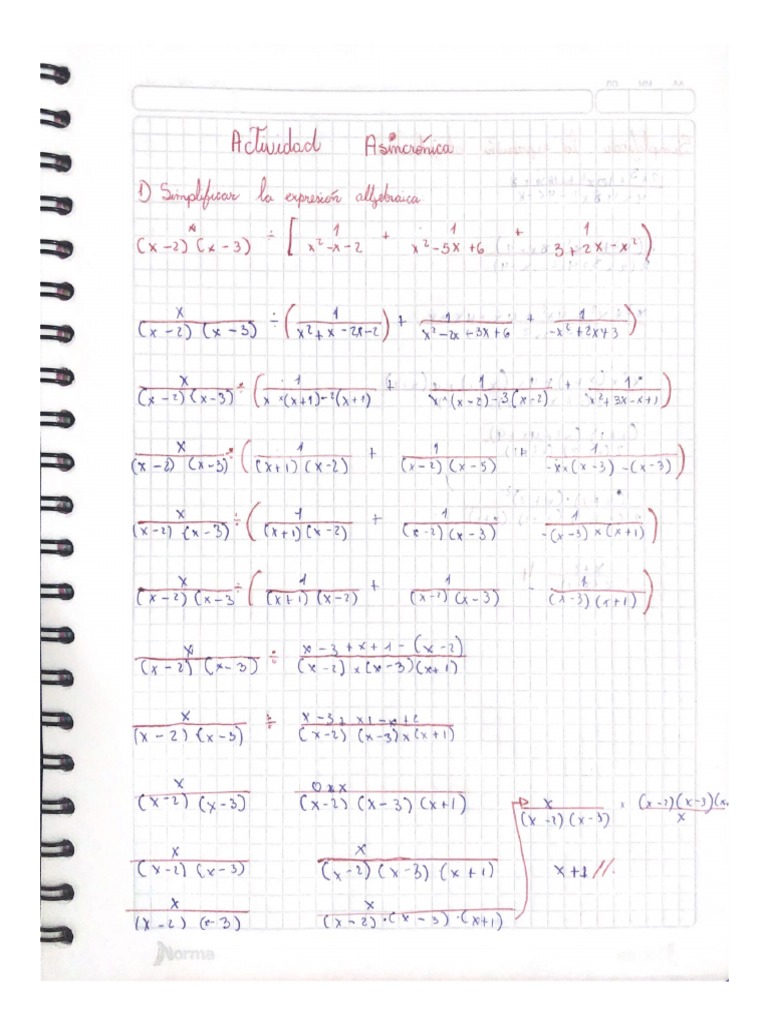 Actividad Asincrónica
1) Simplificar la expresión allgebraica
x/(x-2)(x-3) ÷ [1/x²-x-2 + 1/x²-5x+6 + 1/3+2x-x²)
x/(x-2)(x-3) ÷ (1/x²+x-2x-2) + 1/x²-2x+3x+6 + 1/-x²+2x+3)
x/(x-2)(x-3) ÷ (1/x×(x+1)-2(x+1) + 1/x×(x-2)-3(x-2) + 1/x²+3x-x+1)
x/(x-2)(x-3) ÷ (1/(x+1)(x-2) + 1/(x-2)(x-5) 1/-x×(x-3)-(x-3))
x/(x-2)(x-3) ÷ (1/(x+1)(x-2) + 1/(x-2)(x-3) 1/-(x-3)×(x+1))
x/(x-2)(x-3 ÷ (1/(x+1)(x-2) + 1/(x-2)(x-3) - 1/(x-3)(x+1))
x/(x-2)(x-3) ÷ x-3+x+1-(x-2)/(x-2)×(x-3)(x+1)
x/(x-2)(x-3) ÷ x-3+x1-x+2/(x-2)(x-3)×(x+1)
x/(x-2)(x-3) 0xx/(x-2)(x-3)(x+1)
x/(x-2)(x-3) · (x-2)(x-3)(x/x
x/(x-2)(x-3) x/(x-2)(x-3)(x+1)
x+1//.
x/(x-2)(x-3) x/(x-2)·(x-3)·(x+1)
Norma